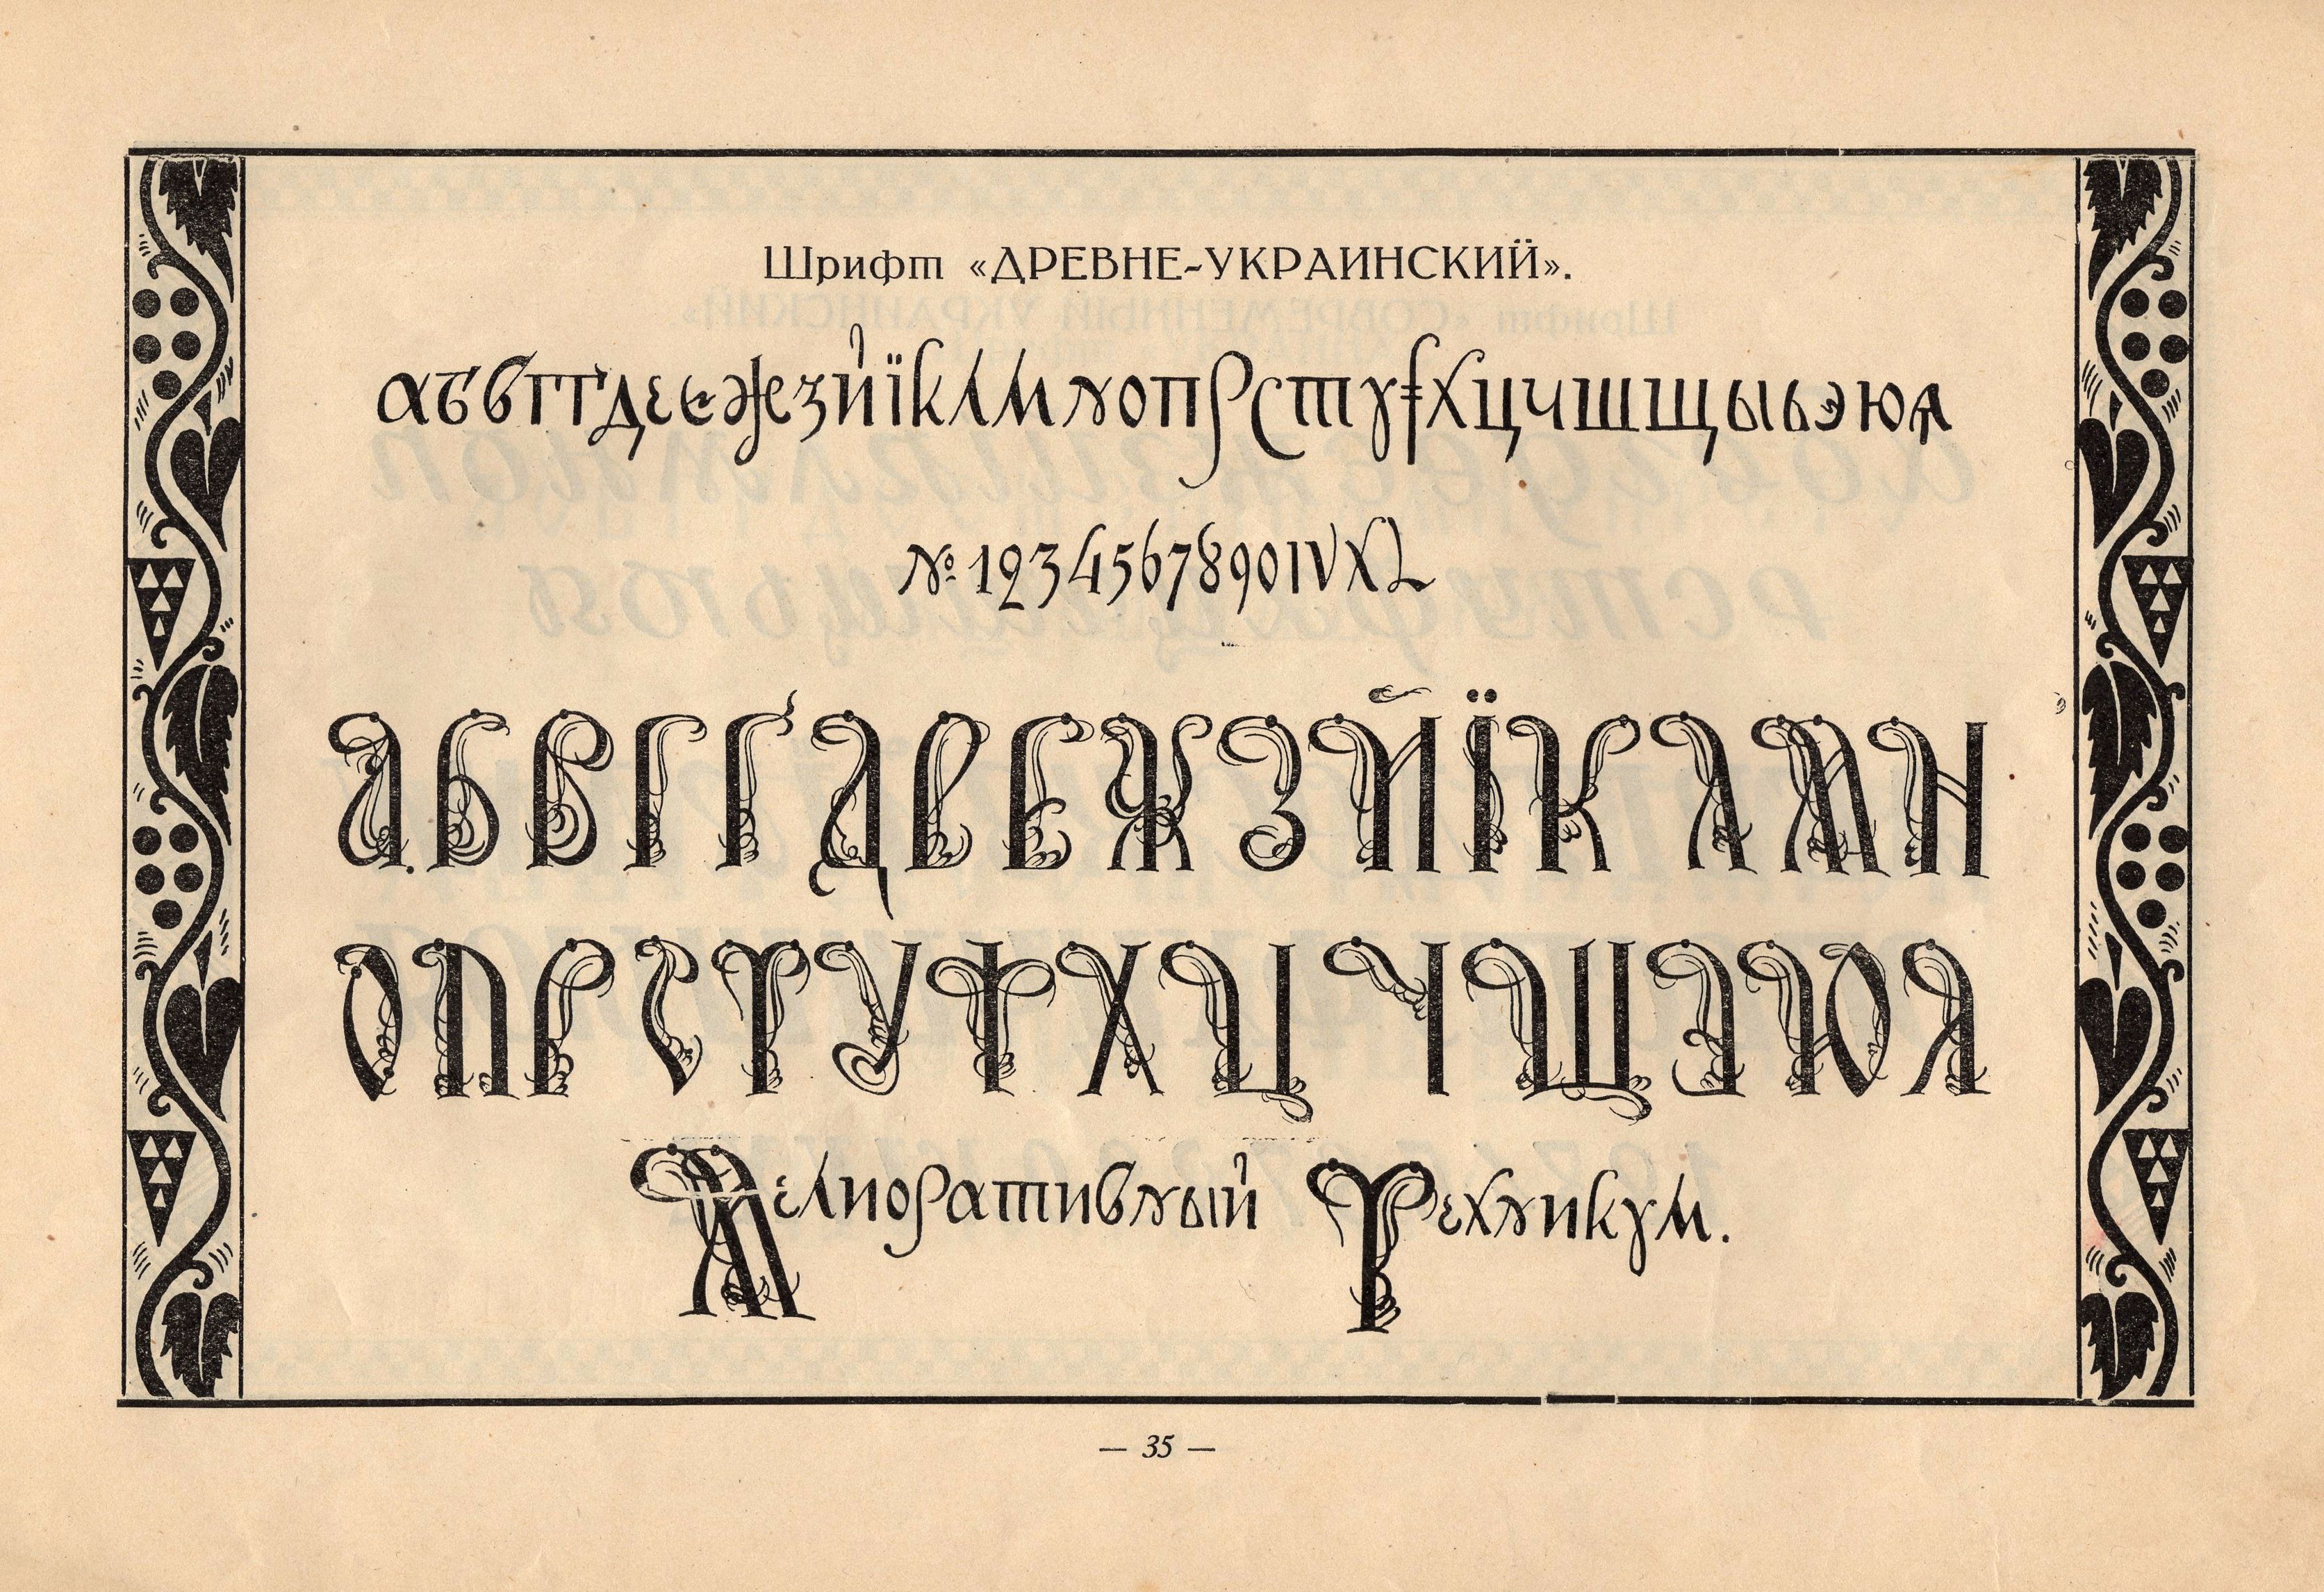 Шрифт «ДРЕВНЕ-УКРАИНСКИЙ».
абвгґдеєжзйїклмнопрстуфхцчшщыьэюя
№ 1234567890IVXL
АБВГҐДЕЄЖЗЙЇКЛМН
ОПРСТУФХЦЧЩЭЮЯ
Мелиоративный Техникум.
— 35 —